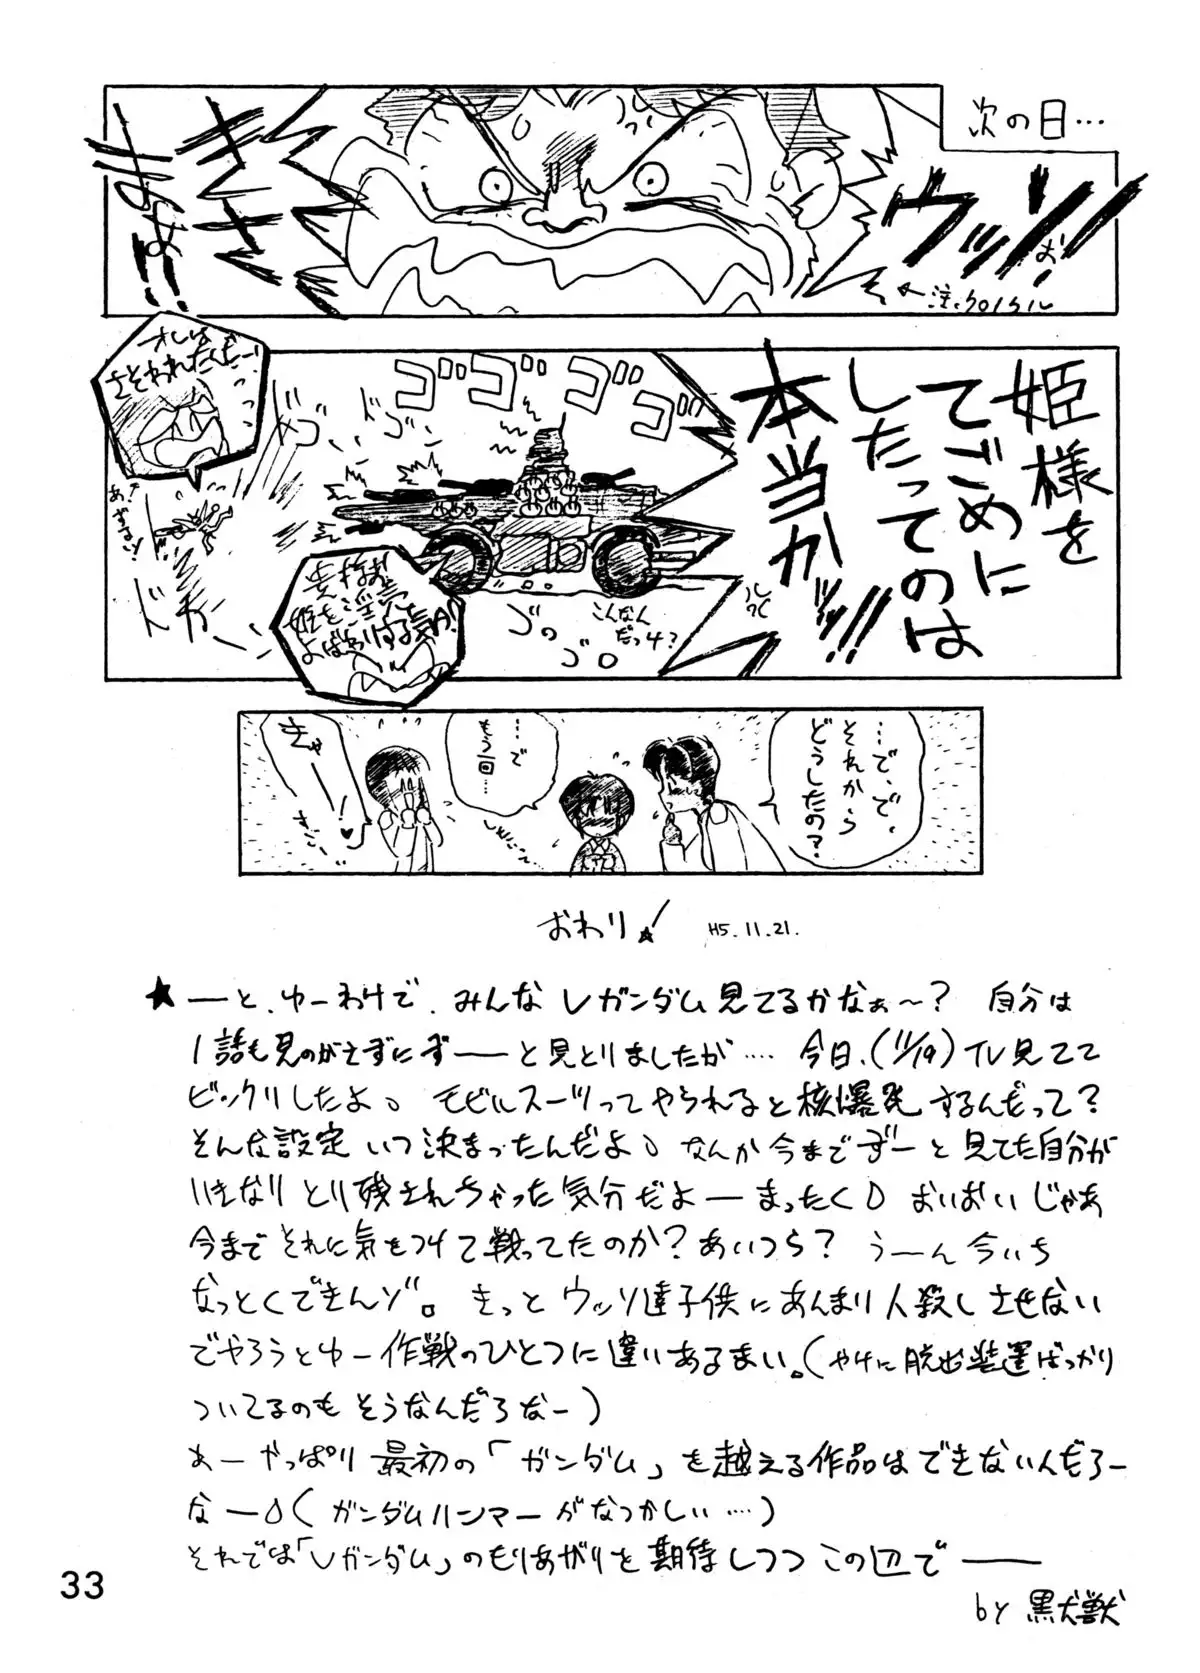 次の日…
ウッソ
お!
きさまぁ!!
←注、クロノクル
姫様を
てごめに
したってのは
本当か!!!
ゴゴゴゴ
オレは
さそわれたんだー!
ドゴ
ドゴ
ドカ
姫を淫乱
よばわりする気か!
ゴゴゴ
こんなん
だっけ?
…で、で、
それから
どうしたの?
…で
もう一回…
きゃー!♥
おわり! H5.11.21.
★ーと、ゆーわけで、みんなVガンダム見てるかなぁ〜? 自分は
1話も見のがさずにずーーっと見とりましたが…. 今日、(11/19)TV見てて
ビックリしたよ。モビルスーツってやられると核爆発するんだって?
そんな設定いつ決まったんだよ。なんか今までずーっと見てた自分が
いきなりとり残されちゃった気分だよーまったく。おいおいじゃあ
今までそれに気をつけて戦ってたのか?あいつら? うーん今いち
なっとくできんゾ。きっとウッソ達子供にあんまり人殺しさせない
でやろうとゆー作戦のひとつに違いあるまい。(やけに脱出装置ばっかり
ついてるのもそうなんだろなー)
あーやっぱり最初の「ガンダム」を越える作品はできないんだろー
なー。(ガンダムハンマーがなつかしい…)
それでは「Vガンダム」のもりあがりを期待しつつこの辺でーー
by 黒犬獣
33